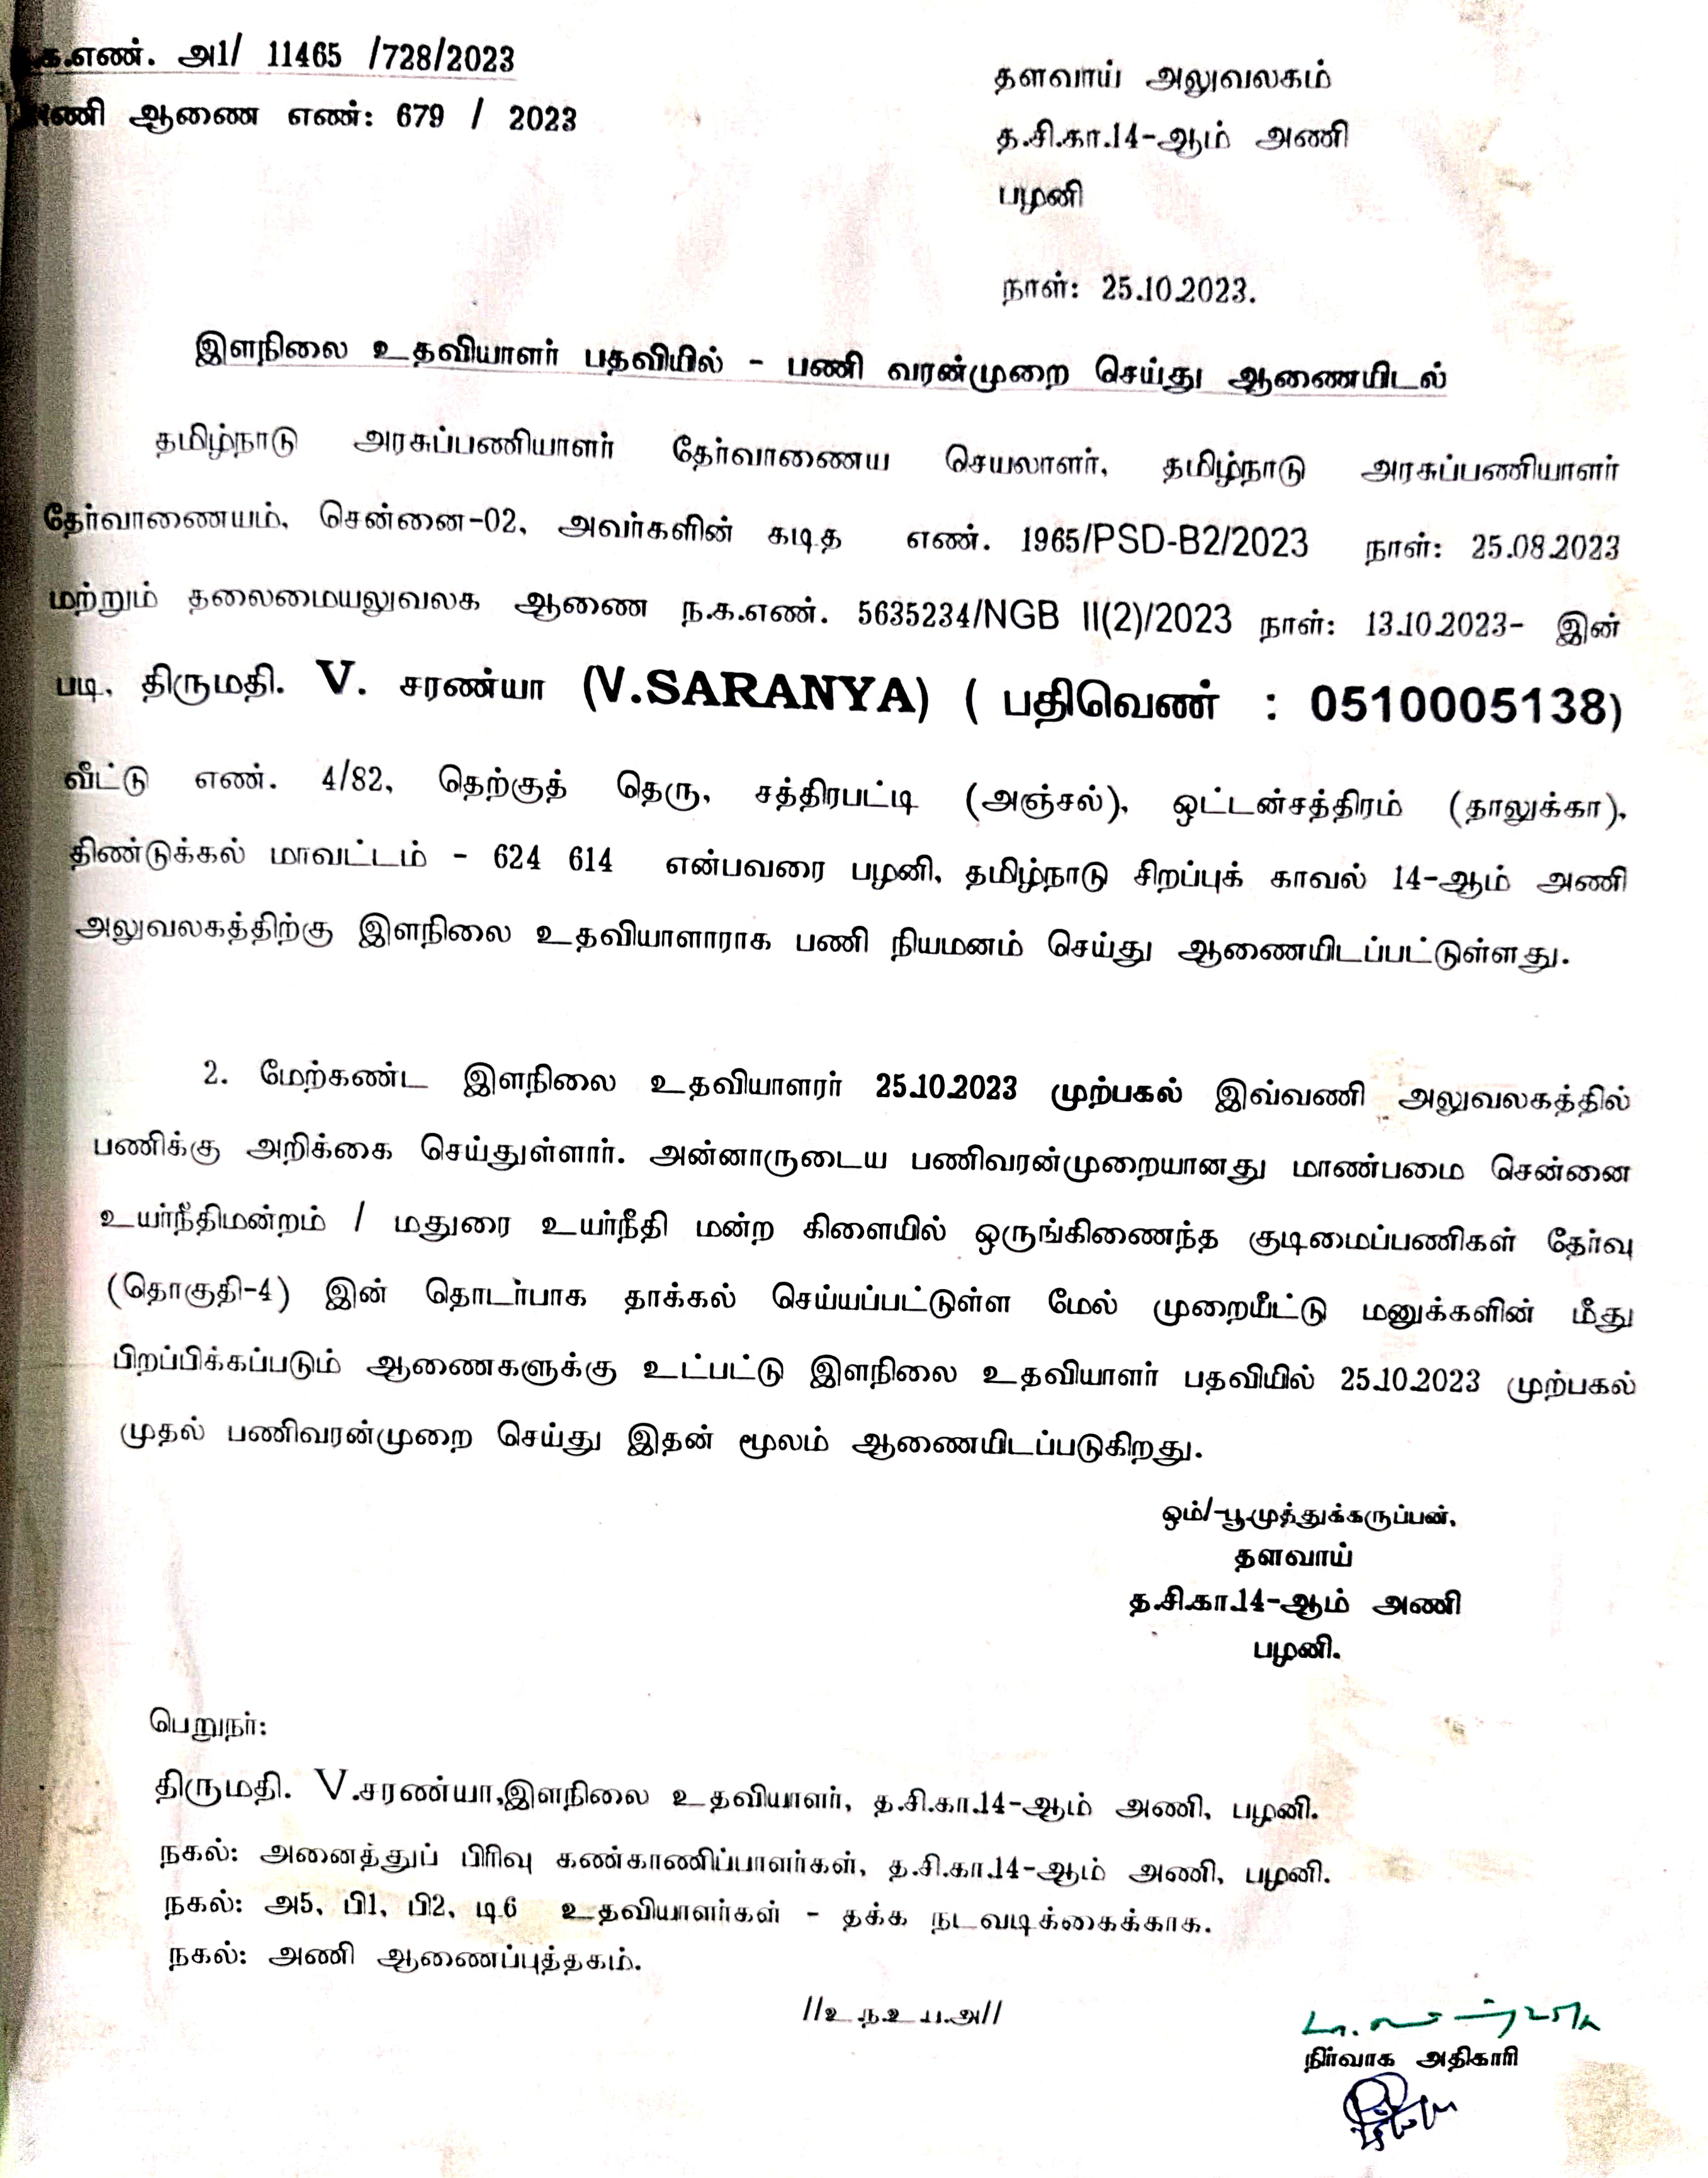 .க.எண். அ1/ 11465 /728/2023
தளவாய் அலுவலகம்
ணி ஆணை எண்: 679 / 2023
த.சி.கா.14-ஆம் அணி
பழனி
நாள்: 25.10.2023.
இளநிலை உதவியாளர் பதவியில் - பணி வரன்முறை செய்து ஆணையிடல்
தமிழ்நாடு அரசுப்பணியாளர் தேர்வாணைய செயலாளர், தமிழ்நாடு அரசுப்பணியாளர்
தேர்வாணையம், சென்னை-02, அவர்களின் கடித எண். 1965/PSD-B2/2023 நாள்: 25.08.2023
மற்றும் தலைமையலுவலக ஆணை ந.க.எண். 5635234/NGB II(2)/2023 நாள்: 13.10.2023- இன்
படி, திருமதி. V. சரண்யா (V.SARANYA) ( பதிவெண் : 0510005138)
வீட்டு எண். 4/82, தெற்குத் தெரு, சத்திரபட்டி (அஞ்சல்), ஒட்டன்சத்திரம் (தாலுக்கா),
திண்டுக்கல் மாவட்டம் - 624 614 என்பவரை பழனி, தமிழ்நாடு சிறப்புக் காவல் 14-ஆம் அணி
அலுவலகத்திற்கு இளநிலை உதவியாளாராக பணி நியமனம் செய்து ஆணையிடப்பட்டுள்ளது.
2. மேற்கண்ட இளநிலை உதவியாளரர் 25.10.2023 முற்பகல் இவ்வணி அலுவலகத்தில்
பணிக்கு அறிக்கை செய்துள்ளார். அன்னாருடைய பணிவரன்முறையானது மாண்பமை சென்னை
உயர்நீதிமன்றம் / மதுரை உயர்நீதி மன்ற கிளையில் ஒருங்கிணைந்த குடிமைப்பணிகள் தேர்வு
(தொகுதி-4) இன் தொடர்பாக தாக்கல் செய்யப்பட்டுள்ள மேல் முறையீட்டு மனுக்களின் மீது
பிறப்பிக்கப்படும் ஆணைகளுக்கு உட்பட்டு இளநிலை உதவியாளர் பதவியில் 25.10.2023 முற்பகல்
முதல் பணிவரன்முறை செய்து இதன் மூலம் ஆணையிடப்படுகிறது.
ஒம்/-பூ.முத்துக்கருப்பன்,
தளவாய்
த.சி.கா.14-ஆம் அணி
பழனி.
பெறுநர்:
திருமதி. V.சரண்யா,இளநிலை உதவியாளர், த.சி.கா.14-ஆம் அணி, பழனி.
நகல்: அனைத்துப் பிரிவு கண்காணிப்பாளர்கள், த.சி.கா.14-ஆம் அணி, பழனி.
நகல்: அ5, பி1, பி2, டி.6 உதவியாளர்கள் - தக்க நடவடிக்கைக்காக.
நகல்: அணி ஆணைப்புத்தகம்.
//உ.ந.உ.ப.அ//
நிர்வாக அதிகாரி